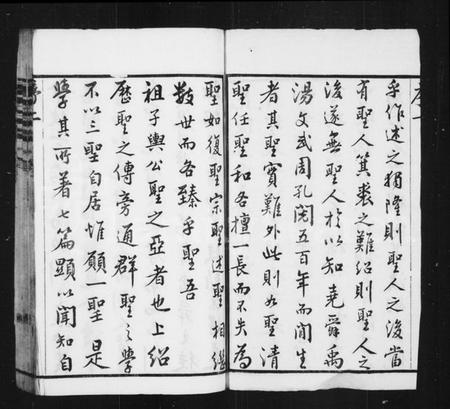 乎作述之獨隆則聖人之後當
有聖人箕裘之難紹則聖人之
後遂無聖人於以知堯舜禹
湯文武周孔閱五百年而間生
者其聖實難外此則如聖清
聖任聖和各擅一長而不失為
聖如復聖宗聖述聖相繼
數世而各臻乎聖吾
祖子輿公聖之亞者也上紹
歷聖之傳旁通群聖之學
不以三聖自居惟願一聖是
學其所著七篇顯以聞知自
序一